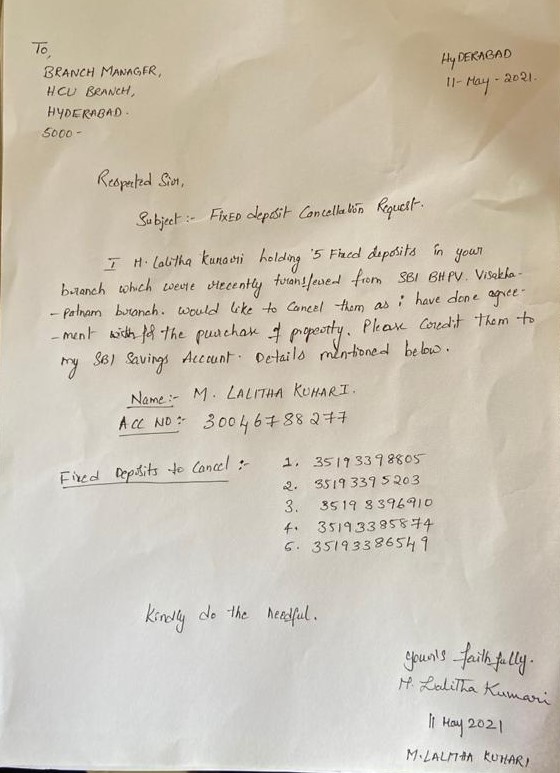 To,
BRANCH MANAGER,
HCU BRANCH,
HYDERABAD.
5000-
HYDERABAD
11-May-2021.
Respected Sir,
Subject :- FIXED deposit Cancellation Request.
I M. Lalitha Kumari holding 5 Fixed deposits in your
branch which were recently transfered from SBI BHPV. Visakha-
-Patnam branch. would like to cancel them as i have done agree-
-ment for the purchase of property. Please Credit them to
my SBI Savings Account. Details mentioned below.
Name :- M. LALITHA KUMARI.
ACC NO :- 30046788277
Fixed Deposits to Cancel :-
1. 35193398805
2. 35193395203
3. 35198396910
4. 35193385874
5. 35193386549
Kindly do the needful.
Yours faithfully.
M. Lalitha Kumari
11 May 2021
M. LALITHA KUMARI